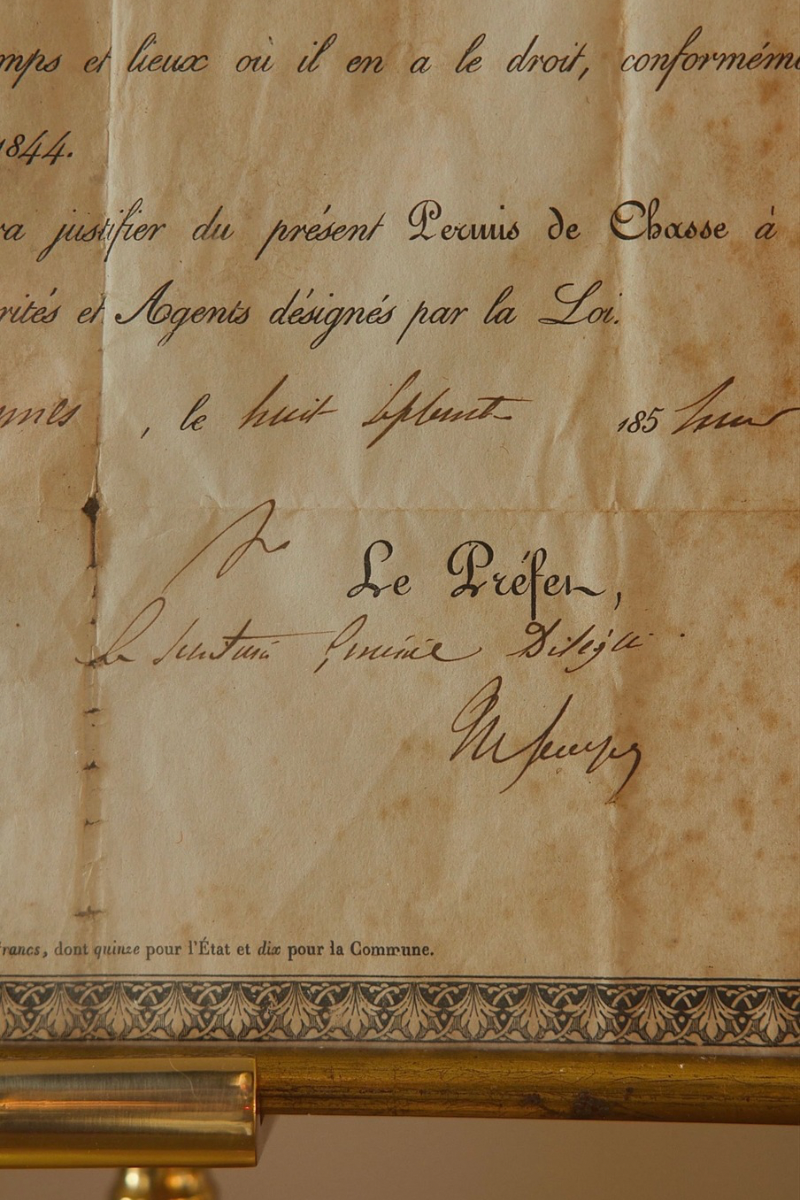 mps et lieux où il en a le droit, conformém
1844.
a justifier du présent Permis de Chasse à
rités et Agents désignés par la Loi.
nnes, le huit Septembre 185
Pr Le Préfet,
Le Secrétaire Général Délégué
francs, dont quinze pour l'État et dix pour la Commune.